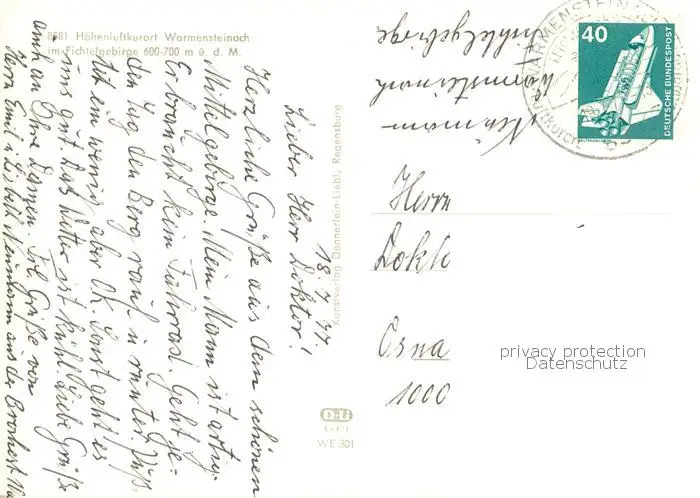 8581 Höhenluftkurort Warmensteinach
im Fichtelgebirge 600-700 m ü. d. M.
18.7.77.
Lieber Herr Doktor!
Herzliche Grüße aus dem schönen
Mittelgebirge. Mein Mann ist artig.
Er braucht kein Fahrrad. Geht je-
den Tag den Berg rauf u. runter. Füß.
tut ein wenig aber Ok. Sonst geht es
uns gut. Das Wetter ist kühl. Liebe Grüße
auch an Ihre Damen. Frl. Grüße von
Herrn Emil u. Lisbeth Neumann aus der Brockest
Kunstverlag Donnerlein-Liebl, Regensburg
D-Li
WE 301
Neumann
Warmensteinach
Fichtelgebirge
WARMENSTEINACH
40
DEUTSCHE BUNDESPOST
Herrn
Dokto
Osna
1000
privacy protection
Datenschutz